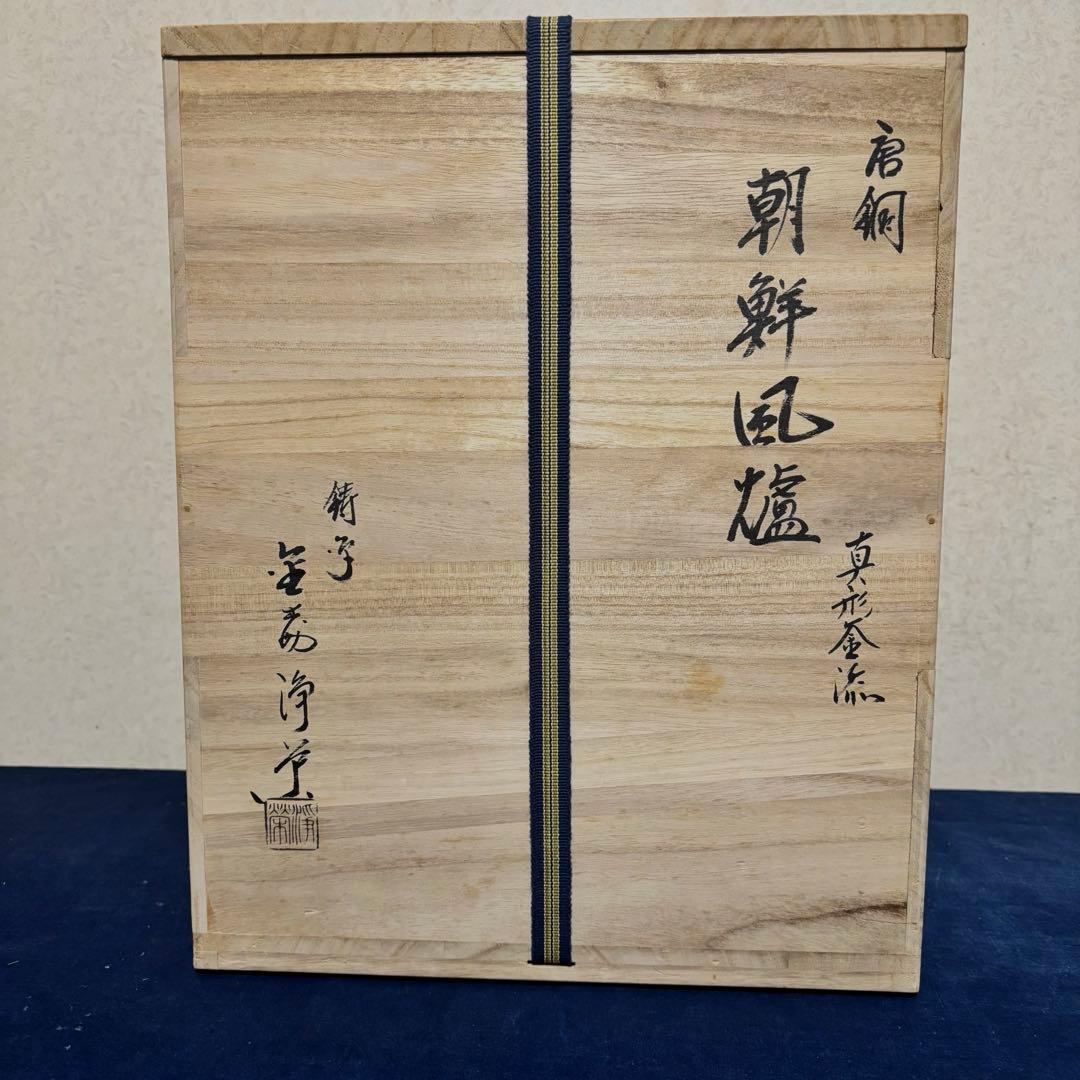 唐銅
朝鮮風爐
真形釜添
鋳師
浄栄
淨榮